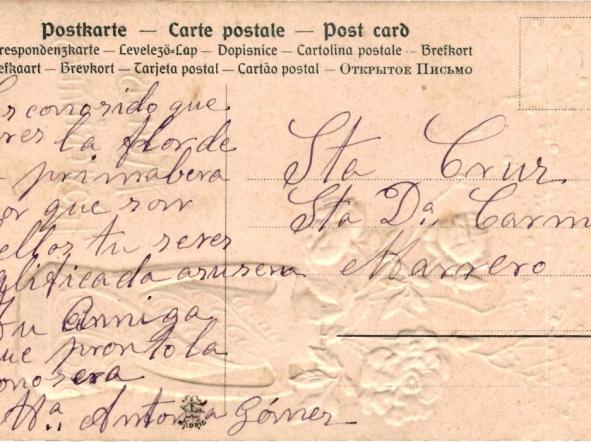 Postkarte — Carte postale — Post card
respondenzkarte — Levelező-Lap — Dopisnice — Cartolina postale — Brefkort
efkaart — Brevkort — Tarjeta postal — Cartão postal — Открытое Письмо
es conosido que
eres la flor de
primabera
por que son
ellos tu seres
glificada asusena
tu Anmiga
que pronto la
conosera
Mª. Antonia Gómer
Sta Cruz
Sta Dª. Carm
Marrero